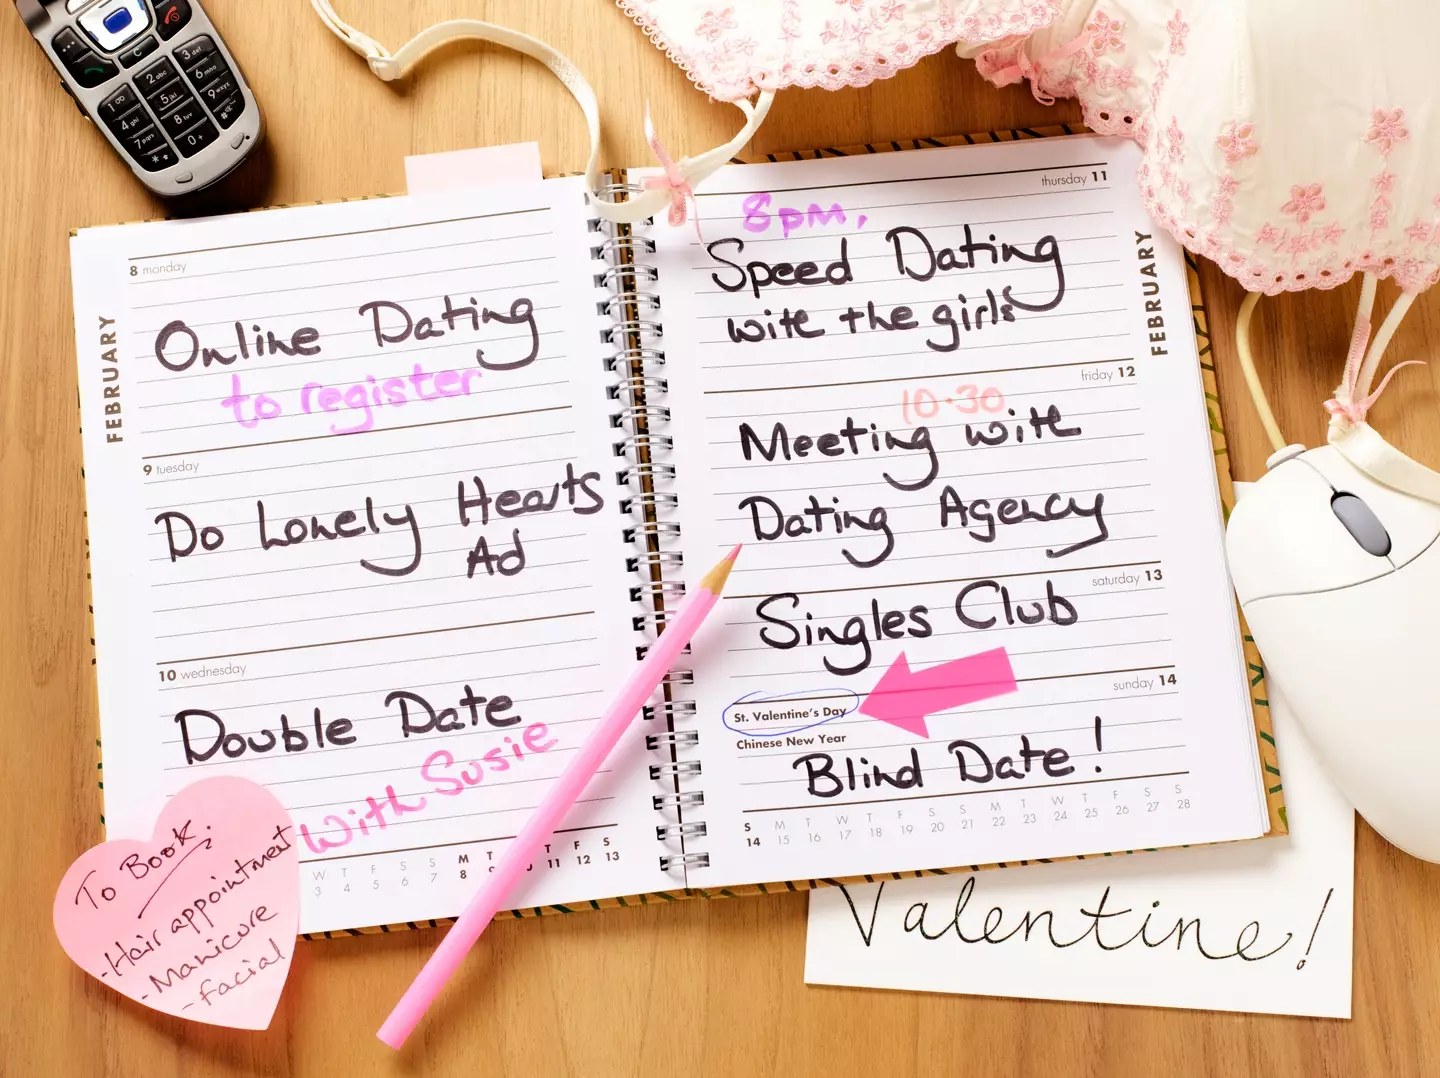 8 monday
Online Dating
to register
FEBRUARY
9 tuesday
Do Lonely Hearts
Ad
10 wednesday
Double Date
with Susie
W T F S S M T F S
3 4 5 6 7 8 9 11 12 13
To Book:
- Hair appointment
- Manicure
- facial
thursday 11
8pm,
Speed Dating
with the girls
FEBRUARY
friday 12
10.30
Meeting with
Dating Agency
saturday 13
Singles Club
sunday 14
St. Valentine's Day
Chinese New Year
Blind Date!
S M T W T F S S M T W T F S S
14 15 16 17 18 19 20 21 22 23 24 25 26 27 28
Valentine!
1
2 abc
3 def
4 ghi
5 jkl
6 mno
7 pqrs
8 tuv
9 wxyz
*
0 +
#
C